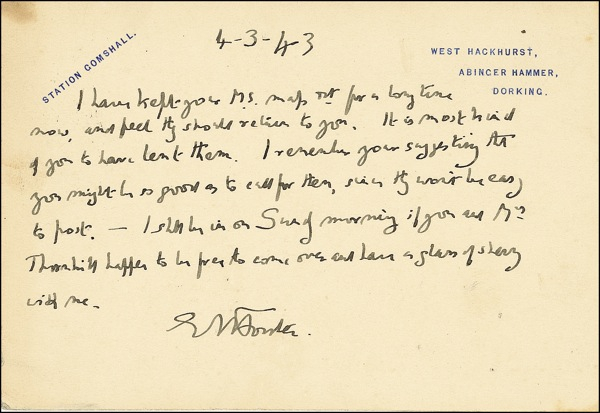 4-3-43
STATION GOMSHALL.
WEST HACKHURST,
ABINGER HAMMER,
DORKING.
I have kept your M.S. maps for a long time
now, and feel they should return to you. It is most kind
of you to have lent them. I remember your suggesting that
you might be so good as to call for them, since they won't be easy
to post. — I shall be in on Sunday morning if you and Mrs
Thornhill happen to be free to come over and have a glass of sherry
with me.
EMForster.